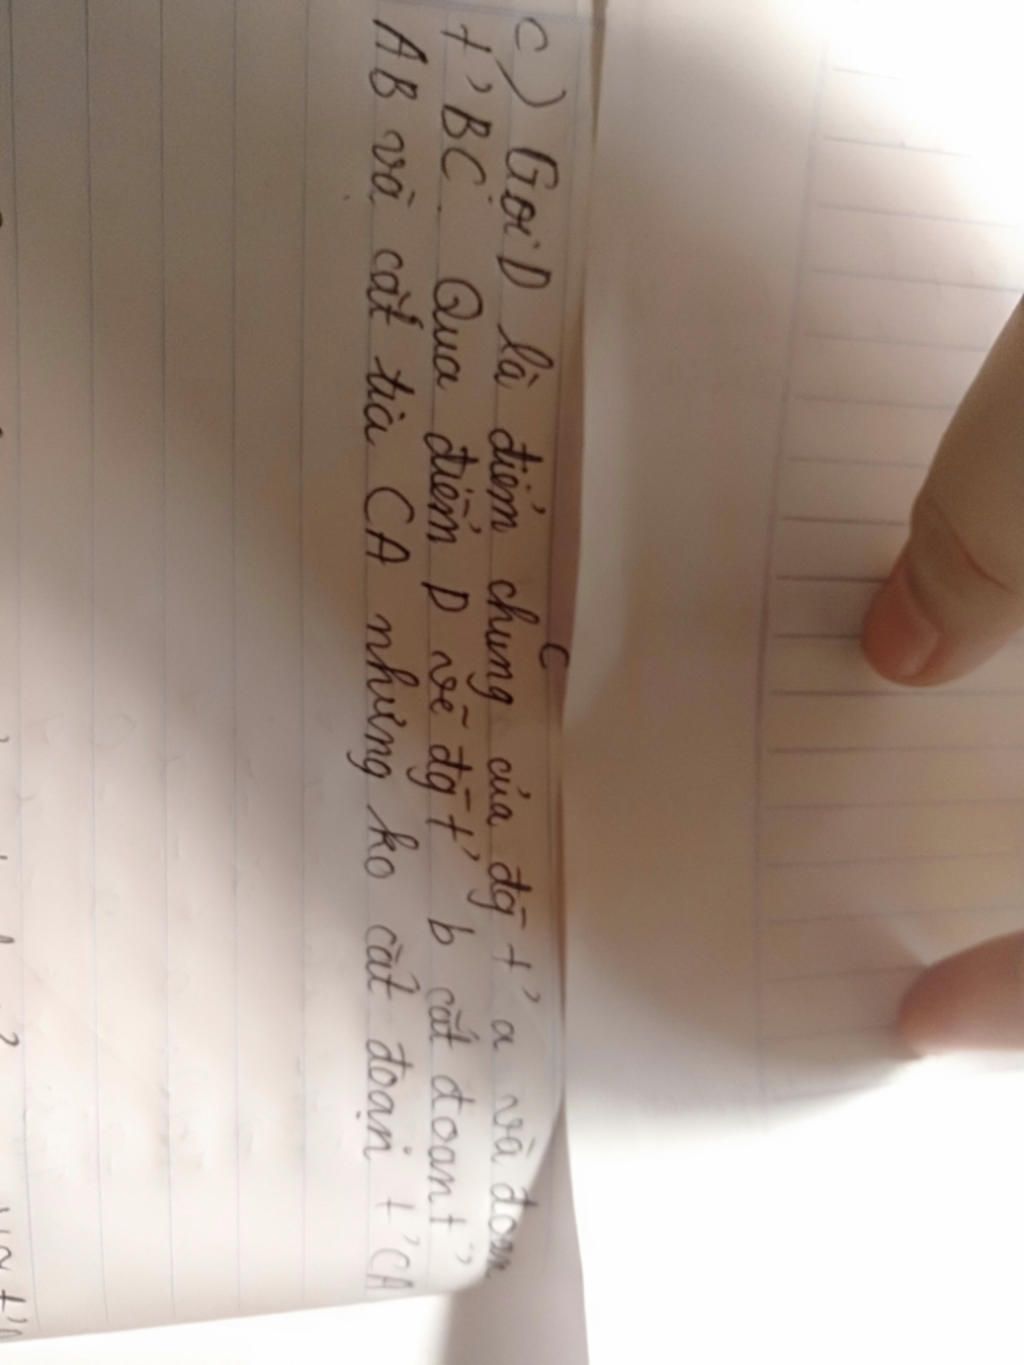 c) Gọi D là điểm chung của đg t' a và đoạn
t' BC. Qua điểm D vẽ đg t' b cắt đoạn t'
AB và cắt tia CA nhưng ko cắt đoạn t' CA
C